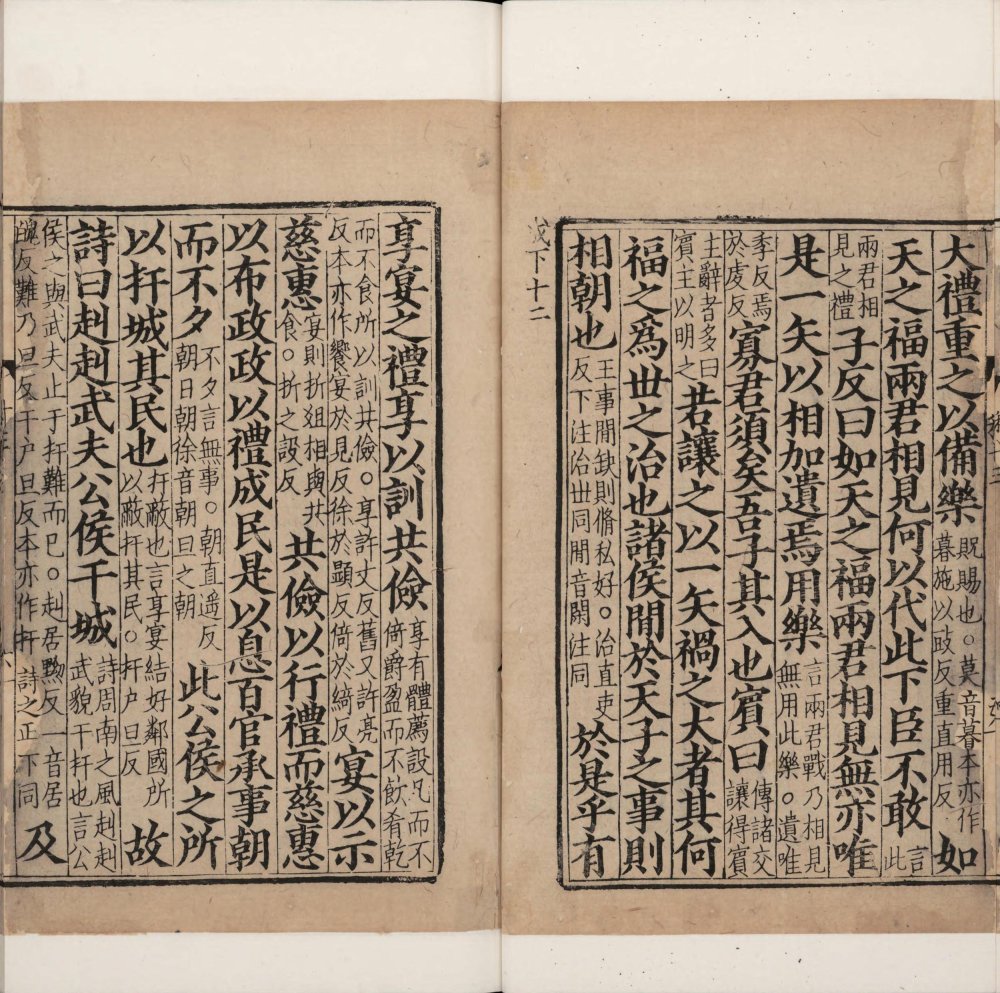 大禮重之以備樂貺賜也。莫音暮本亦作暮施以豉反重直用反如
天之福兩君相見何以代此下臣不敢言此
兩君相見之禮子反曰如天之福兩君相見無亦唯
是一矢以相加遺焉用樂言兩君戰乃相見無用此樂。遺唯
季反焉於虔反寡君須矣吾子其入也賓曰傳諸交讓得賓
主辭者多曰賓主以明之若讓之以一矢禍之大者其何
福之爲世之治也諸侯閒於天子之事則
相朝也王事閒缺則脩私好。治直吏反下注治世同閒音閑注同於是乎有
成下十二
享宴之禮享以訓共儉享有體薦設几而不倚爵盈而不飲肴乾
而不食所以訓共儉。享許丈反舊又許亮反本亦作饗宴於見反徐於顯反倚於綺反宴以示
慈惠宴則折俎相與共食。折之設反共儉以行禮而慈惠
以布政政以禮成民是以息百官承事朝
而不夕不夕言無事。朝直遥反朝日朝徐音朝旦之朝此公侯之所
以扞城其民也扞蔽也言享宴結好鄰國所以蔽扞其民。扞户旦反故
詩曰赳赳武夫公侯干城詩周南之風赳赳武貌干扞也言公
侯之與武夫止于扞難而已。赳居黝反一音居醜反難乃旦反干户旦反本亦作扞詩之正下同及